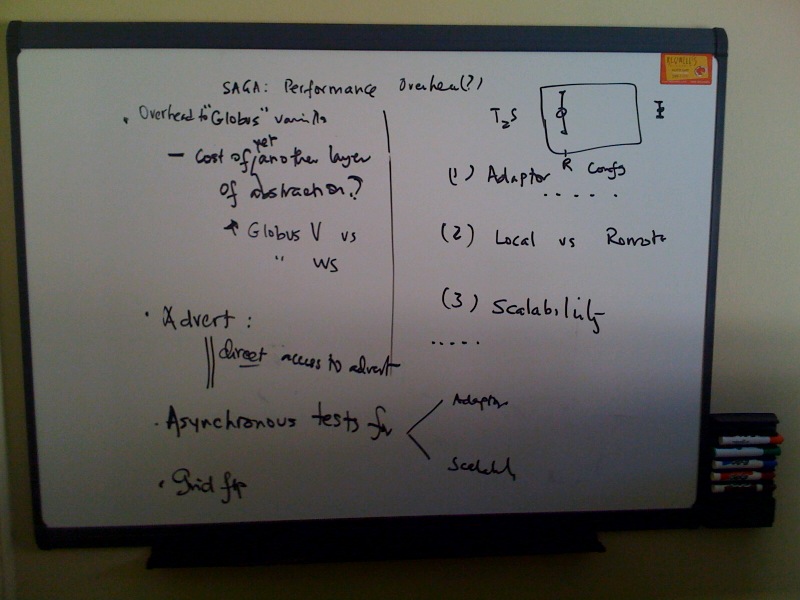 SAGA: Performance Overhead(?)
• Overhead to "Globus" vanilla
– Cost of yet another layer
of abstraction?
Globus V vs
" WS
• Advert:
direct access to advert
• Asynchronous tests for
Adaptor
Scalability
• Grid ftp
T2S
R
I
(1) Adaptor Confs
.....
(2) Local vs Remote
(3) Scalability
.....